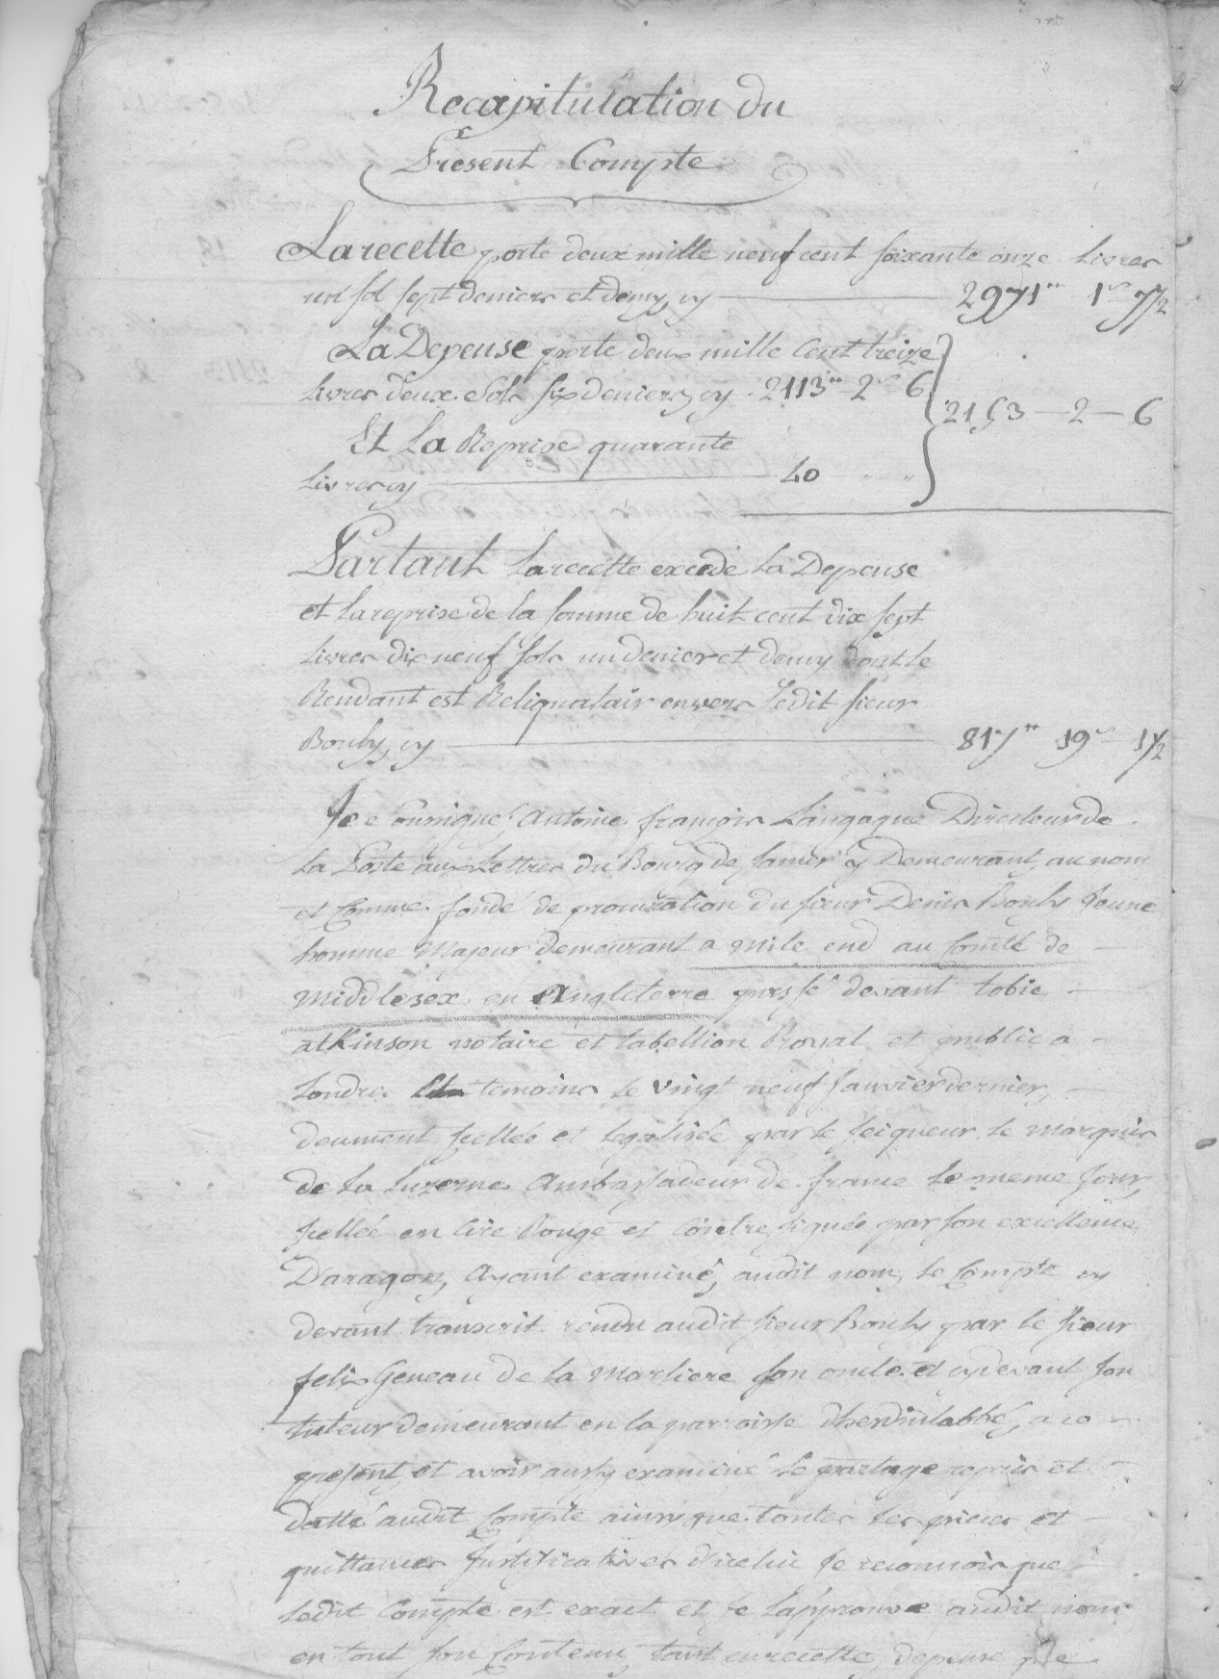 Recapitulation du
Present Compte
La recette porte deux mille neuf cent soixante onze livres
un sol sept deniers et demy, cy 2971ᵗᵗ 1ˢ 7½
La Depense porte deux mille Cent treize
livres deux Sols six deniers cy 2113ᵗᵗ 2ˢ 6
2153 - 2 - 6
Et La Reprise quarante
livres cy 40
Partant La recette excede La Depense
et La reprise de la somme de huit cent dix sept
livres dix neuf sols un denier et demy dont le
Rendant est Reliquatair envers Ledit sieur
Bouly, cy 817ᵗᵗ 19ˢ 1½
Je Soussigné, Antoine françois Langagne Directeur de
La Poste aux Lettres du Bourg de Samer y Demeurant, au nom
et Comme fondé de procuration du sieur Denis Bouly Jeune
homme Majeur demeurant a Mile end au Comté de
Middlesex en Angleterre passé devant tobie
atkinson notaire et tabellion Royal et public a
Londres temoins le vingt neuf Janvier dernier,
deument scellée et Legalisée par le seigneur le marquis
de la Luzerne Ambassadeur de france le meme jour
scellée en Cire Rouge et Contresignée par son excellence
D'aragon, Ayant examiné, audit nom, le Compte cy
devant transcrit rendu audit sieur Bouly par le sieur
felix Geneau de la Marliere son oncle et cydevant son
tuteur demeurant en la parroisse d'hesdinlabbé, a ce
present, et avoir aussy examiné le partage repris et
datté audit Compte ainsy que toutes les pieces et
quittances Justificatives d'icelui Je reconnois que
Ledit Compte est exact et Je Lapprouve audit nom
en tout son Contenu, tant en recette, depense